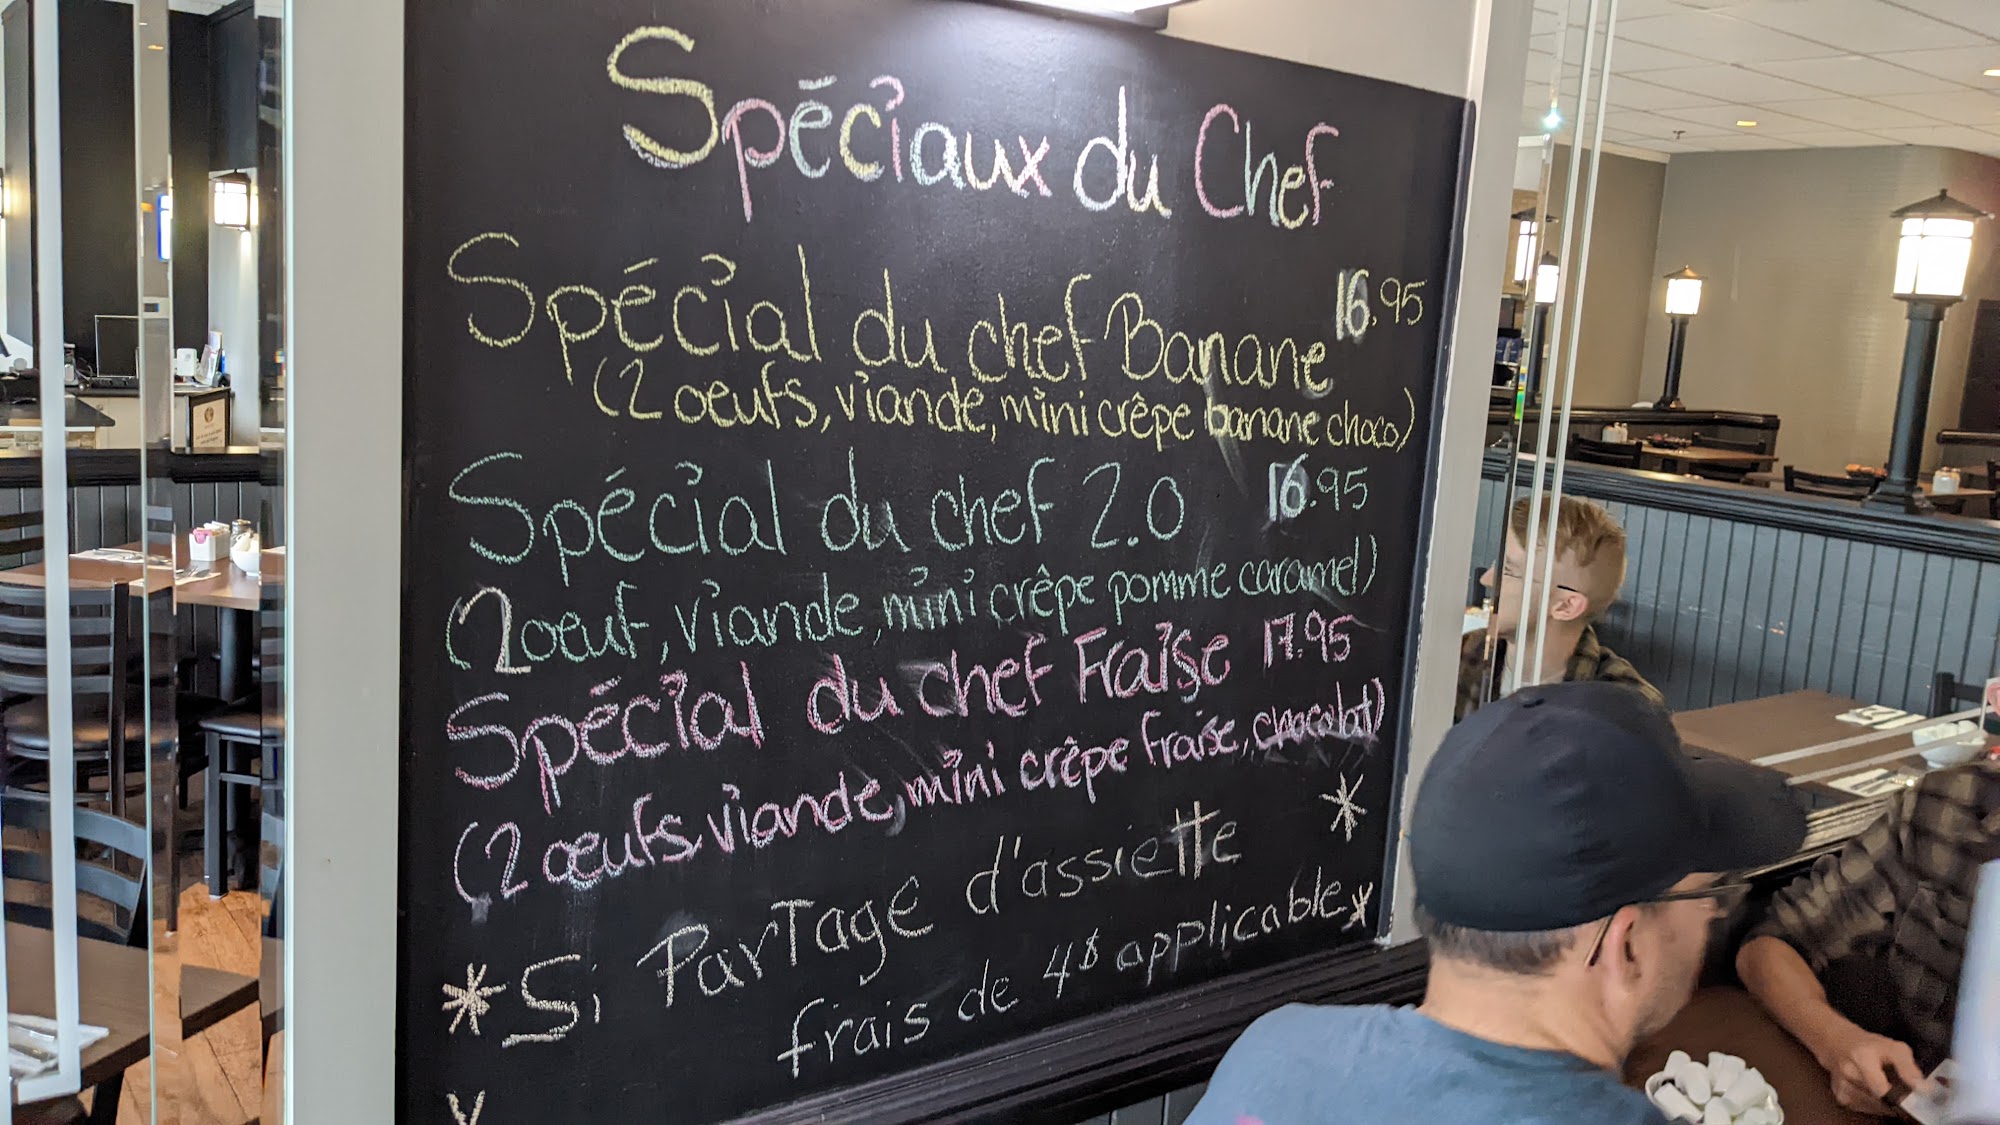 Spéciaux du Chef
Spécial du chef Banane 16.95
(2 oeufs, viande, mini crêpe banane choco)
Spécial du chef 2.0 16.95
(2 oeuf, viande, mini crêpe pomme caramel)
Spécial du chef Fraise 17.95
(2 œufs viande, mini crêpe fraise, chocolat)
*Si Partage d'assiette *
frais de 4$ applicable*